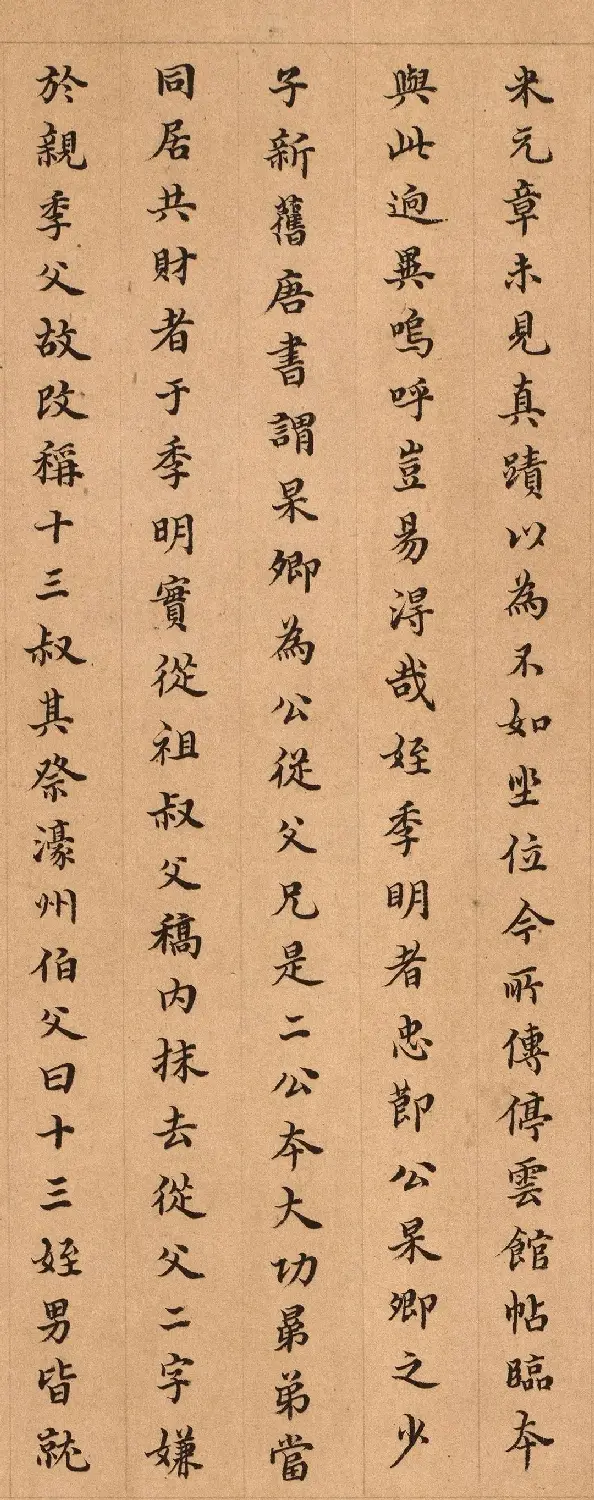 米元章未見真蹟以為不如坐位今所傳停雲館帖臨本
與此逈異嗚呼豈易得哉姪季明者忠節公杲卿之少
子新舊唐書謂杲卿為公從父兄是二公本大功晜弟當
同居共財者于季明實從祖叔父稿内抹去從父二字嫌
於親季父故改稱十三叔其祭濠州伯父曰十三姪男皆就